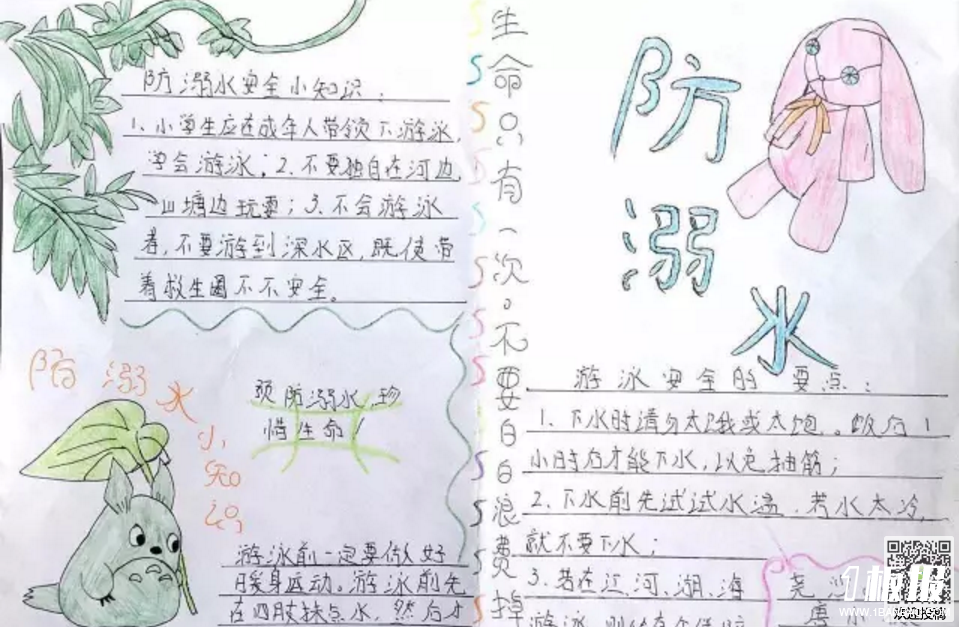 防溺水安全小知识：
1、小学生应在成年人带领下游泳，
学会游泳；2、不要独自在河边、
山塘边玩耍；3、不会游泳
者，不要游到深水区，既使带
着救生圈不不安全。
防溺水
小知识
预防溺水，珍
惜生命！
游泳前一定要做好
暖身运动。游泳前先
在四肢抹点水，然后才
生命只有一次。不要白白浪费掉
防溺水
游泳安全的要点：
1、下水时请勿太饿或太饱。饭后1
小时后才能下水，以免抽筋；
2、下水前先试试水温，若水太冷，
就不要下水；
3、若在江、河、湖、海
游泳，则
1板报
WWW.1BANBAO.COM
欢迎投稿